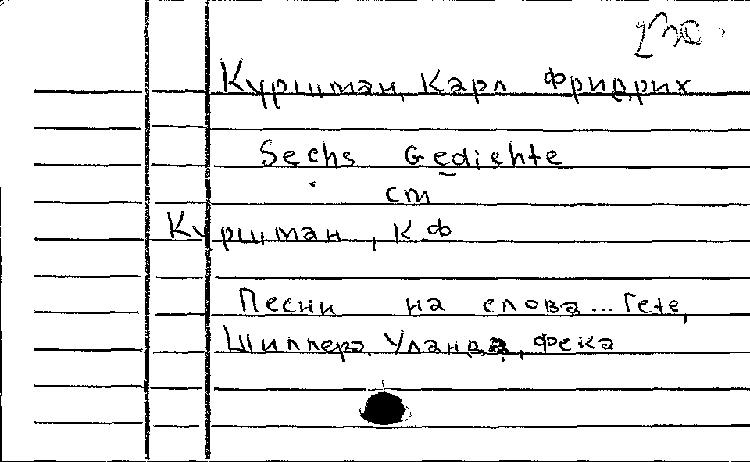 Куршман, Карл Фридрих
Sechs Gedichte
cm
Куршман, К.Ф
Песни на слова... Гете,
Шиллера, Уланда, Фека